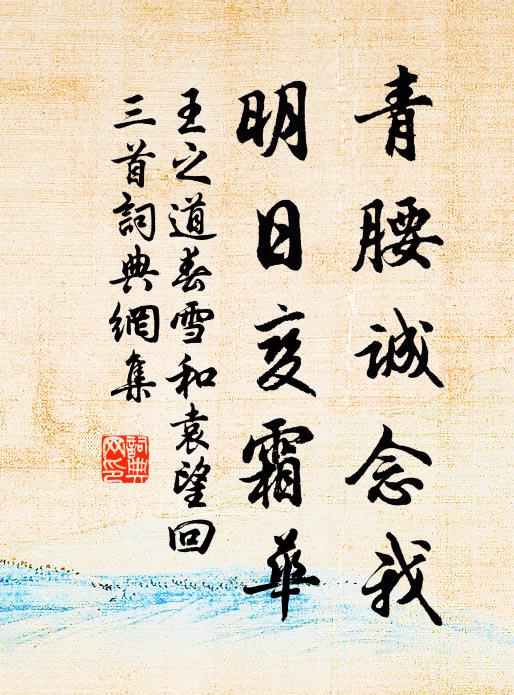 青腰誠念我
明日变霜華
王之道春雪和袁望回
三首詞典網集
詞典
网印